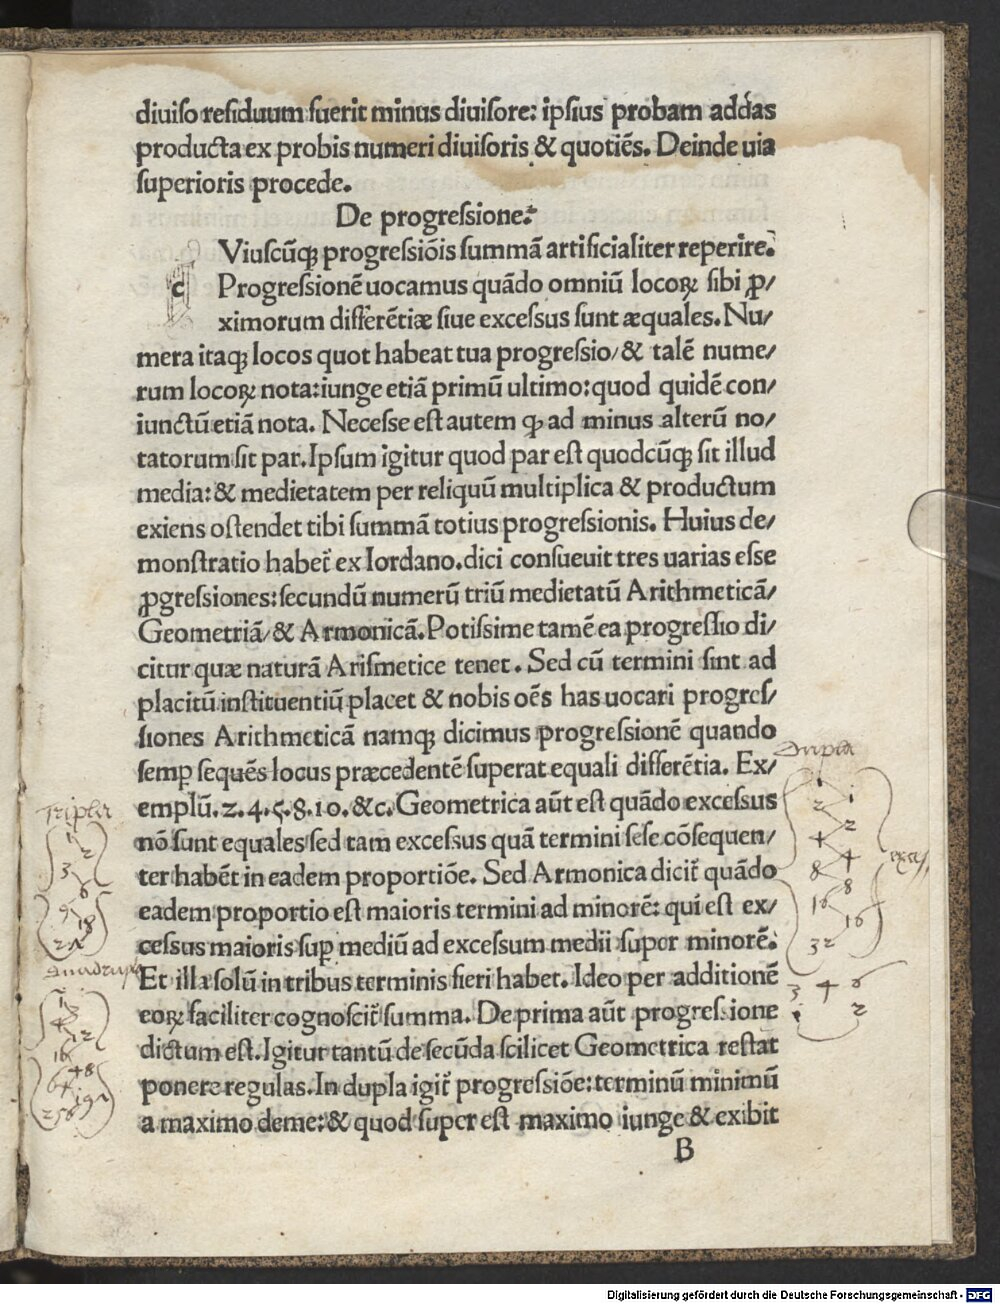 diuiſo reſiduum fuerit minus diuiſore: ipſius probam addas
producta ex probis numeri diuiſoris & quotiēs. Deinde uia
ſuperioris procede.
De progreſsione.
c Viuſcūqꝫ progreſsiōis ſummā artificialiter reperire.
Progreſsionē uocamus quādo omniū locoꝝ ſibi ꝓ/
ximorum differētiæ ſiue exceſsus ſunt æquales. Nu/
mera itaqꝫ locos quot habeat tua progreſsio/& talē nume/
rum locoꝝ nota: iunge etiā primū ultimo: quod quidē con/
iunctū etiā nota. Neceſse eſt autem ꝙ ad minus alterū no/
tatorum ſit par. Ipſum igitur quod par eſt quodcūqꝫ ſit illud
media: & medietatem per reliquū multiplica & productum
exiens oſtendet tibi ſummā totius progreſsionis. Huius de/
monſtratio habet̄ ex Iordano. dici conſueuit tres uarias eſse
ꝓgreſsiones: ſecundū numerū triū medietatū Arithmeticā/
Geometriā/& Armonicā. Potiſsime tamē ea progreſſio di/
citur quæ naturā Ariſmetice tenet. Sed cū termini ſint ad
placitū inſtituentiū placet & nobis oēs has uocari progreſ/
ſiones Arithmeticā namqꝫ dicimus progreſsionē quando
ſemꝑ ſequēs locus præcedentē ſuperat equali differētia. Ex/
emplū. 2. 4. 5. 8. 10. &c. Geometrica aūt eſt quādo exceſsus
nō ſunt equales ſed tam exceſsus quā termini ſeſe cōſequen/
ter habēt in eadem proportiōe. Sed Armonica dicit̄ quādo
eadem proportio eſt maioris termini ad minorē: qui eſt ex/
ceſsus maioris ſuꝑ mediū ad exceſsum medii ſuper minorē.
Et illa ſolū in tribus terminis fieri habet. Ideo per additionē
eoꝝ faciliter cognoſcit̄ ſumma. De prima aūt progreſsione
dictum eſt. Igitur tantū de ſecūda ſcilicet Geometrica reſtat
ponere regulas. In dupla igit̄ progreſsiōe: terminū minimū
a maximo deme: & quod ſuper eſt maximo iunge & exibit
B
Dupla
1
2 1
4 2
8 4
16 8
32 16
3 4 6
1 2
Tripla
1
3 2
9 6
27 18
Quadrupla
1
4 3
16 12
64 48
256 192
Digitalisierung gefördert durch die Deutsche Forschungsgemeinschaft - DFG